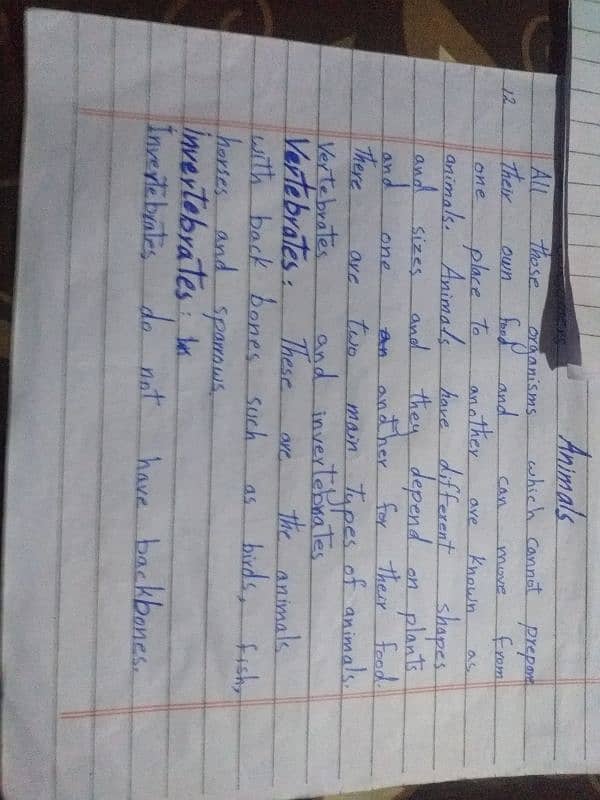 Animals
All those organisms which cannot prepare
12 their own food and can move from
one place to another are known as
animals. Animals have different shapes
and sizes and they depend on plants
and one an another for their food.
There are two main types of animals.
Vertebrates and invertebrates
Vertebrates: These are the animals
with back bones such as birds, fish,
horses and sparrows.
invertebrates: In
Invertebrates do not have backbones.